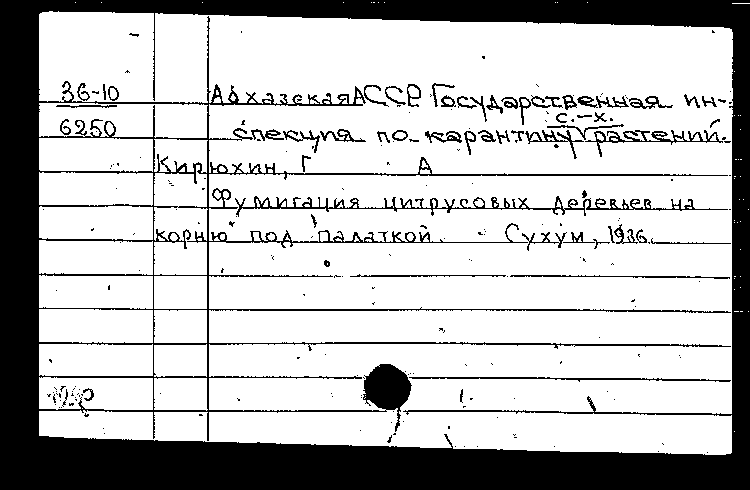 36-10 Абхазская АССР. Государственная ин-
с.-х.
6250 спекция по карантину растений.
Кирюхин, Г А
Фумигация цитрусовых деревьев на
корню под палаткой. Сухум, 1936.